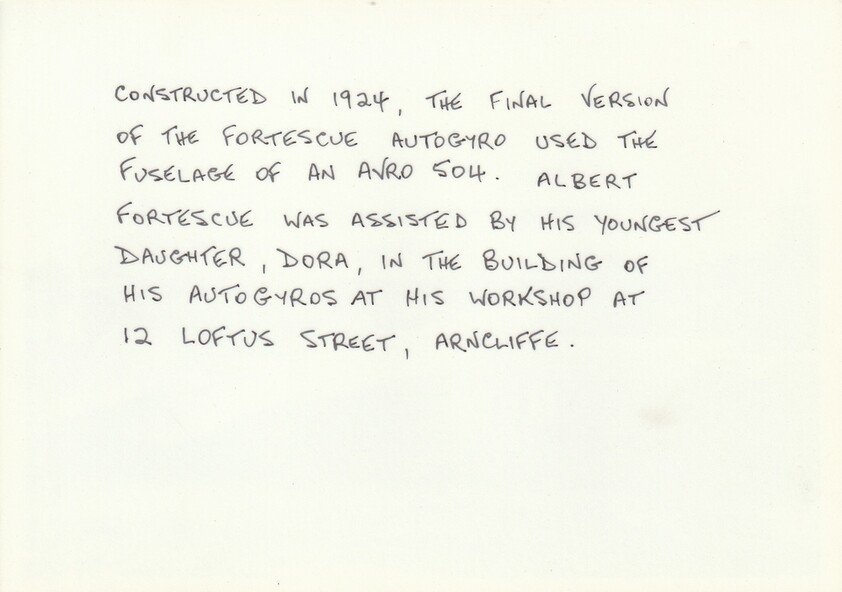 CONSTRUCTED IN 1924, THE FINAL VERSION
OF THE FORTESCUE AUTOGYRO USED THE
FUSELAGE OF AN AVRO 504. ALBERT
FORTESCUE WAS ASSISTED BY HIS YOUNGEST
DAUGHTER, DORA, IN THE BUILDING OF
HIS AUTOGYROS AT HIS WORKSHOP AT
12 LOFTUS STREET, ARNCLIFFE.